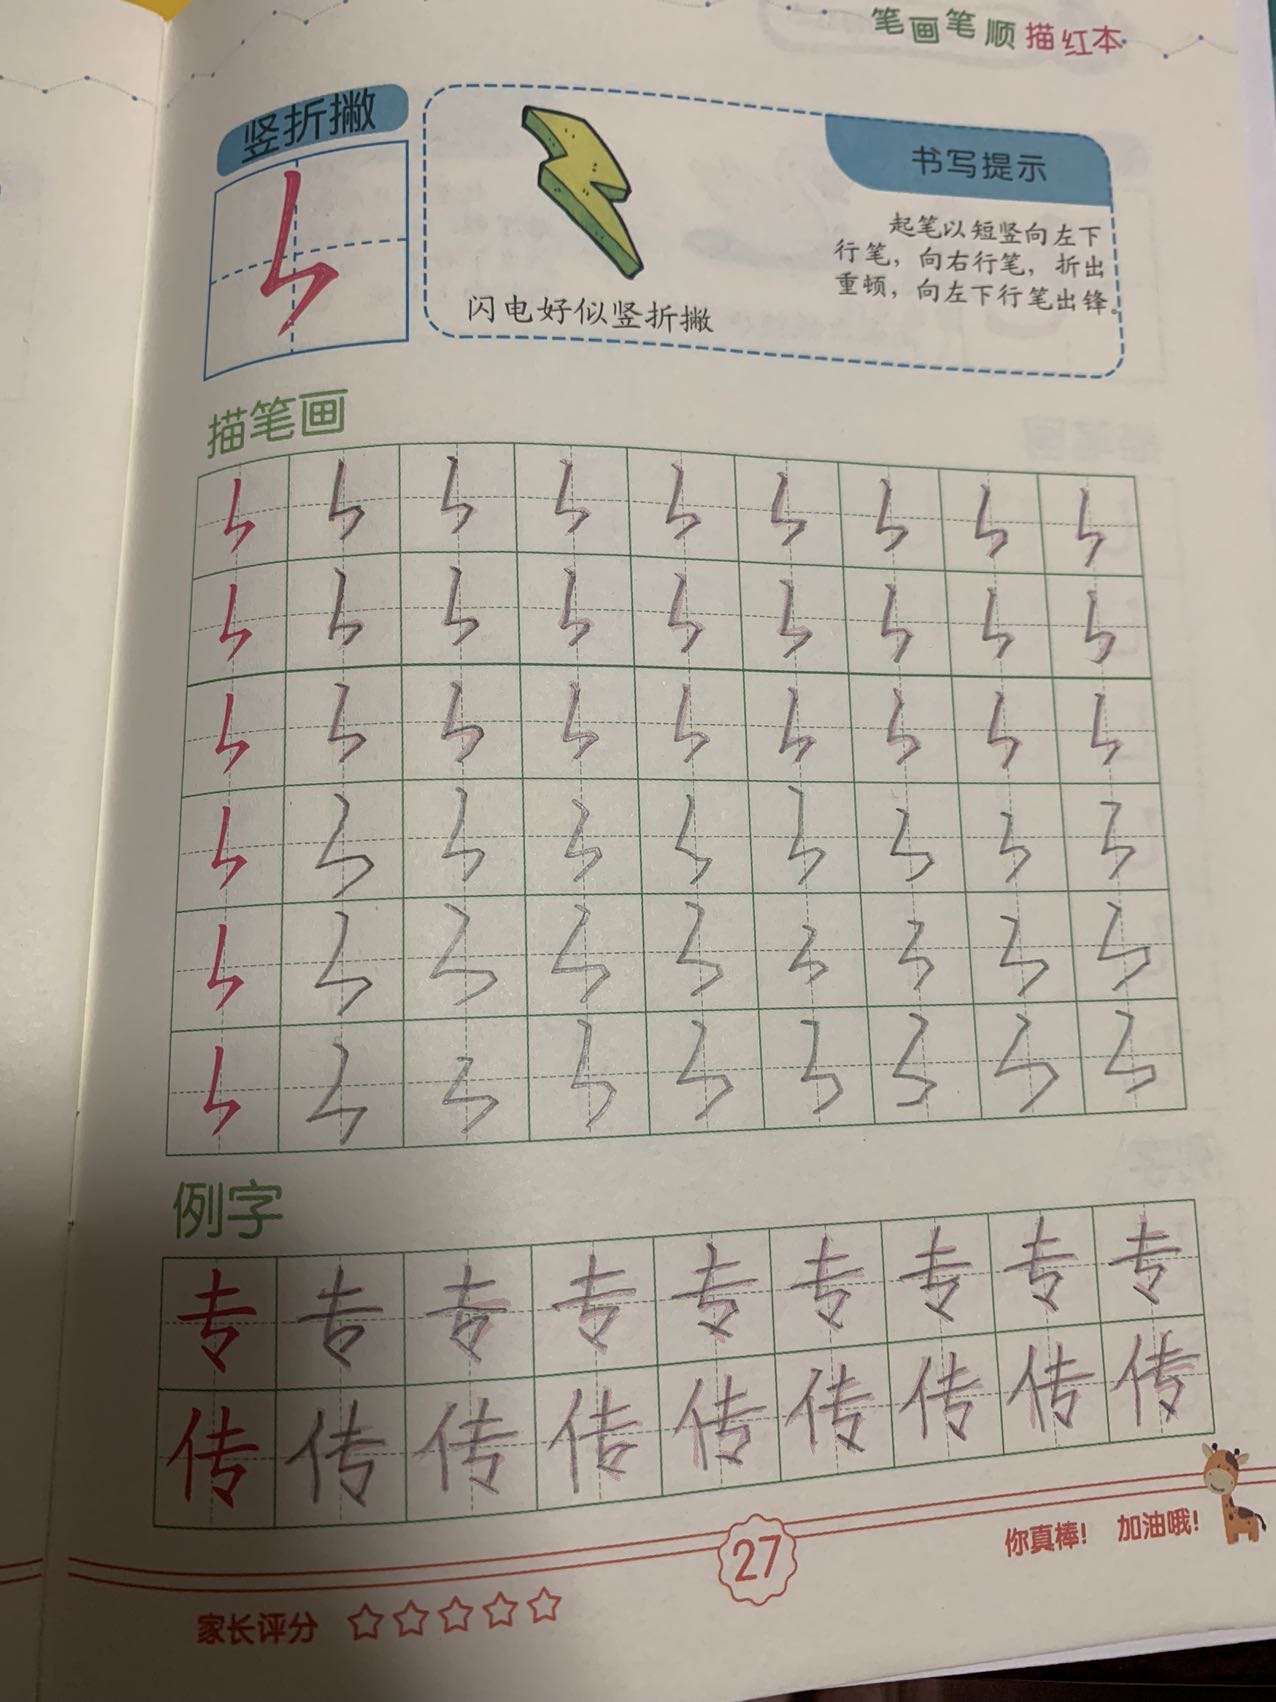 笔画笔顺描红本
竖折撇
书写提示
起笔以短竖向左下
行笔，向右行笔，折出
重顿，向左下行笔出锋。
闪电好似竖折撇
描笔画
例字
专 专 专 专 专 专 专 专 专
传 传 传 传 传 传 传 传 传
27
你真棒！ 加油哦！
家长评分